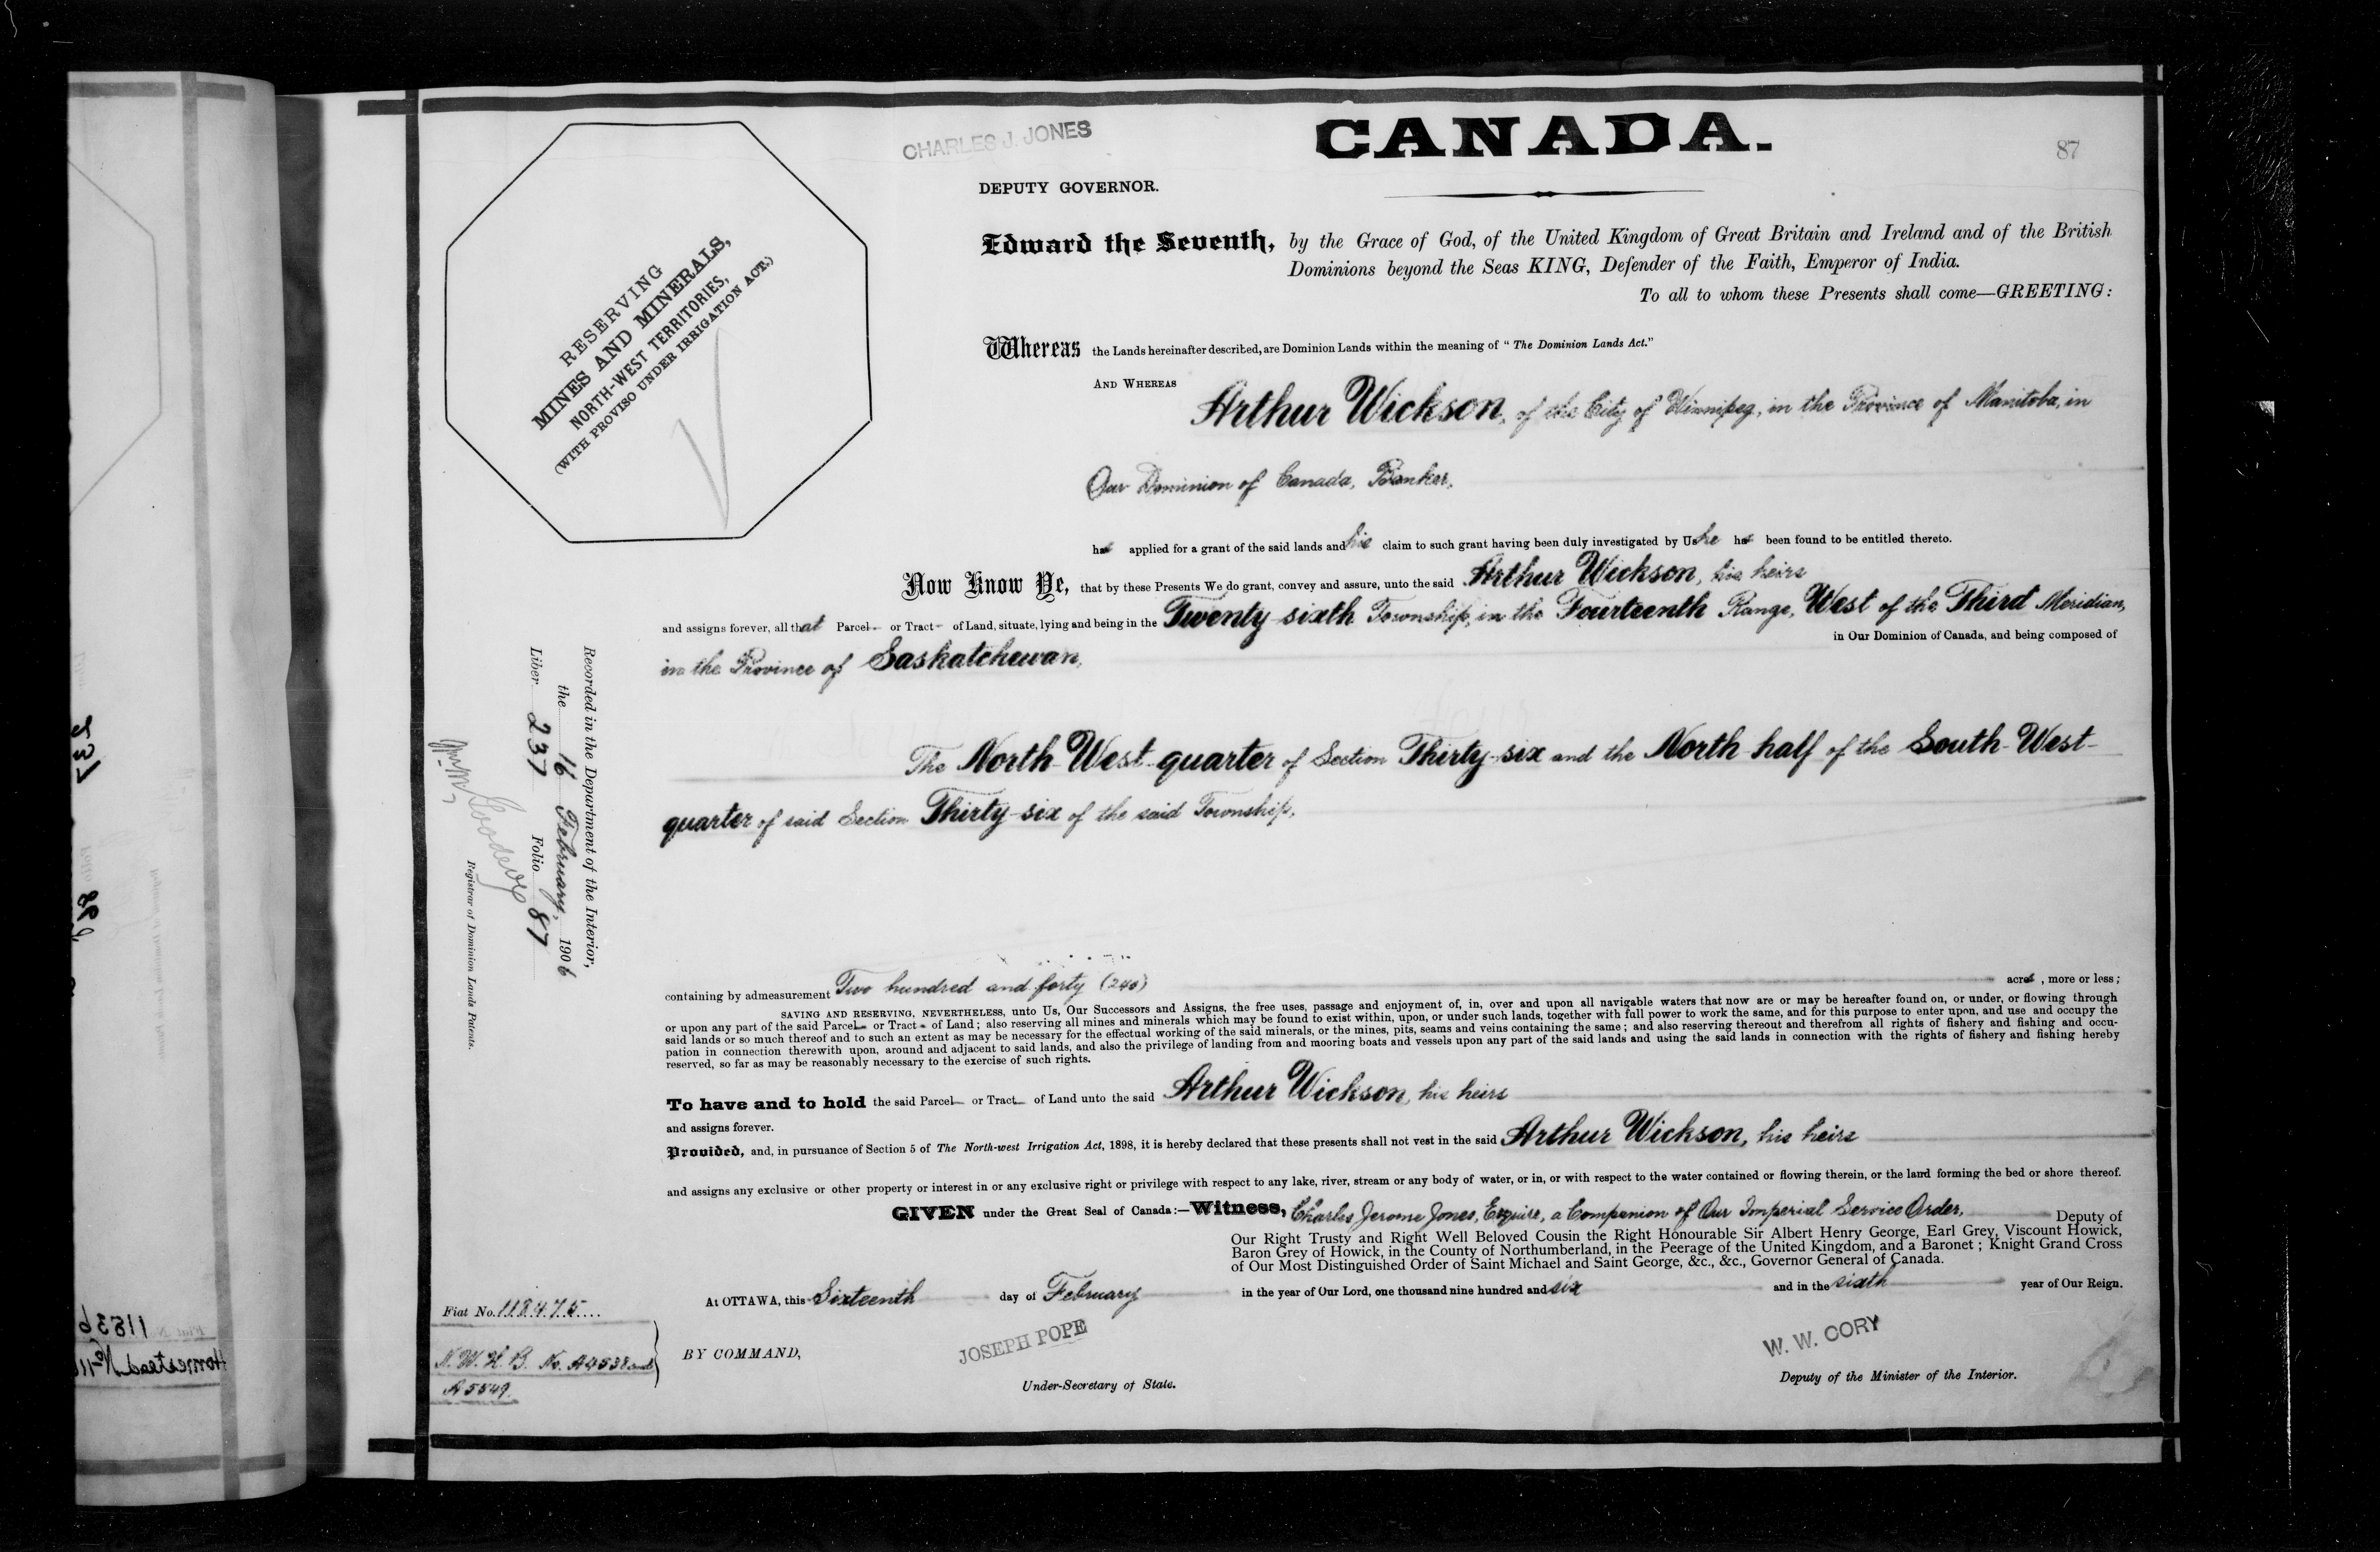 CHARLES J. JONES
CANADA.
87
DEPUTY GOVERNOR.
RESERVING
MINES AND MINERALS,
NORTH-WEST TERRITORIES,
(WITH PROVISO UNDER IRRIGATION ACT.)
Edward the Seventh, by the Grace of God, of the United Kingdom of Great Britain and Ireland and of the British
Dominions beyond the Seas KING, Defender of the Faith, Emperor of India.
To all to whom these Presents shall come—GREETING:
Whereas the Lands hereinafter described, are Dominion Lands within the meaning of "The Dominion Lands Act."
AND WHEREAS Arthur Wickson, of the City of Winnipeg, in the Province of Manitoba, in
Our Dominion of Canada, Banker,
has applied for a grant of the said lands and his claim to such grant having been duly investigated by Us he has been found to be entitled thereto.
Now Know Ye, that by these Presents We do grant, convey and assure, unto the said Arthur Wickson, his heirs
and assigns forever, all that Parcel or Tract of Land, situate, lying and being in the Twenty-sixth Township, in the Fourteenth Range, West of the Third Meridian,
in the Province of Saskatchewan, in Our Dominion of Canada, and being composed of
The North-West-quarter of Section Thirty-six and the North half of the South-West-
quarter of said Section Thirty-six of the said Township.
containing by admeasurement Two hundred and forty (240) acres, more or less;
SAVING AND RESERVING, NEVERTHELESS, unto Us, Our Successors and Assigns, the free uses, passage and enjoyment of, in, over and upon all navigable waters that now are or may be hereafter found on, or under, or flowing through
or upon any part of the said Parcel or Tract of Land; also reserving all mines and minerals which may be found to exist within, upon, or under such lands, together with full power to work the same, and for this purpose to enter upon, and use and occupy the
said lands or so much thereof and to such an extent as may be necessary for the effectual working of the said minerals, or the mines, pits, seams and veins containing the same; and also reserving thereout and therefrom all rights of fishery and fishing and occu-
pation in connection therewith upon, around and adjacent to said lands, and also the privilege of landing from and mooring boats and vessels upon any part of the said lands and using the said lands in connection with the rights of fishery and fishing hereby
reserved, so far as may be reasonably necessary to the exercise of such rights.
To have and to hold the said Parcel or Tract of Land unto the said Arthur Wickson, his heirs
and assigns forever.
Provided, and, in pursuance of Section 5 of The North-west Irrigation Act, 1898, it is hereby declared that these presents shall not vest in the said Arthur Wickson, his heirs
and assigns any exclusive or other property or interest in or any exclusive right or privilege with respect to any lake, river, stream or any body of water, or in, or with respect to the water contained or flowing therein, or the land forming the bed or shore thereof.
GIVEN under the Great Seal of Canada:—Witness, Charles Jerome Jones, Esquire, a Companion of Our Imperial Service Order, Deputy of
Our Right Trusty and Right Well Beloved Cousin the Right Honourable Sir Albert Henry George, Earl Grey, Viscount Howick,
Baron Grey of Howick, in the County of Northumberland, in the Peerage of the United Kingdom, and a Baronet; Knight Grand Cross
of Our Most Distinguished Order of Saint Michael and Saint George, &c., &c., Governor General of Canada.
At OTTAWA, this Sixteenth day of February in the year of Our Lord, one thousand nine hundred and six and in the sixth year of Our Reign.
BY COMMAND,
JOSEPH POPE
Under-Secretary of State.
W. W. CORY
Deputy of the Minister of the Interior.
Recorded in the Department of the Interior,
the 16 February, 1906
Liber 237 Folio 87
Wm. M. Goodeve
Registrar of Dominion Lands Patents.
Fiat No. 118475
N.W.H.B. No. A4538 and
A5549.
237
88
Fiat N
11836
Homestead No 11